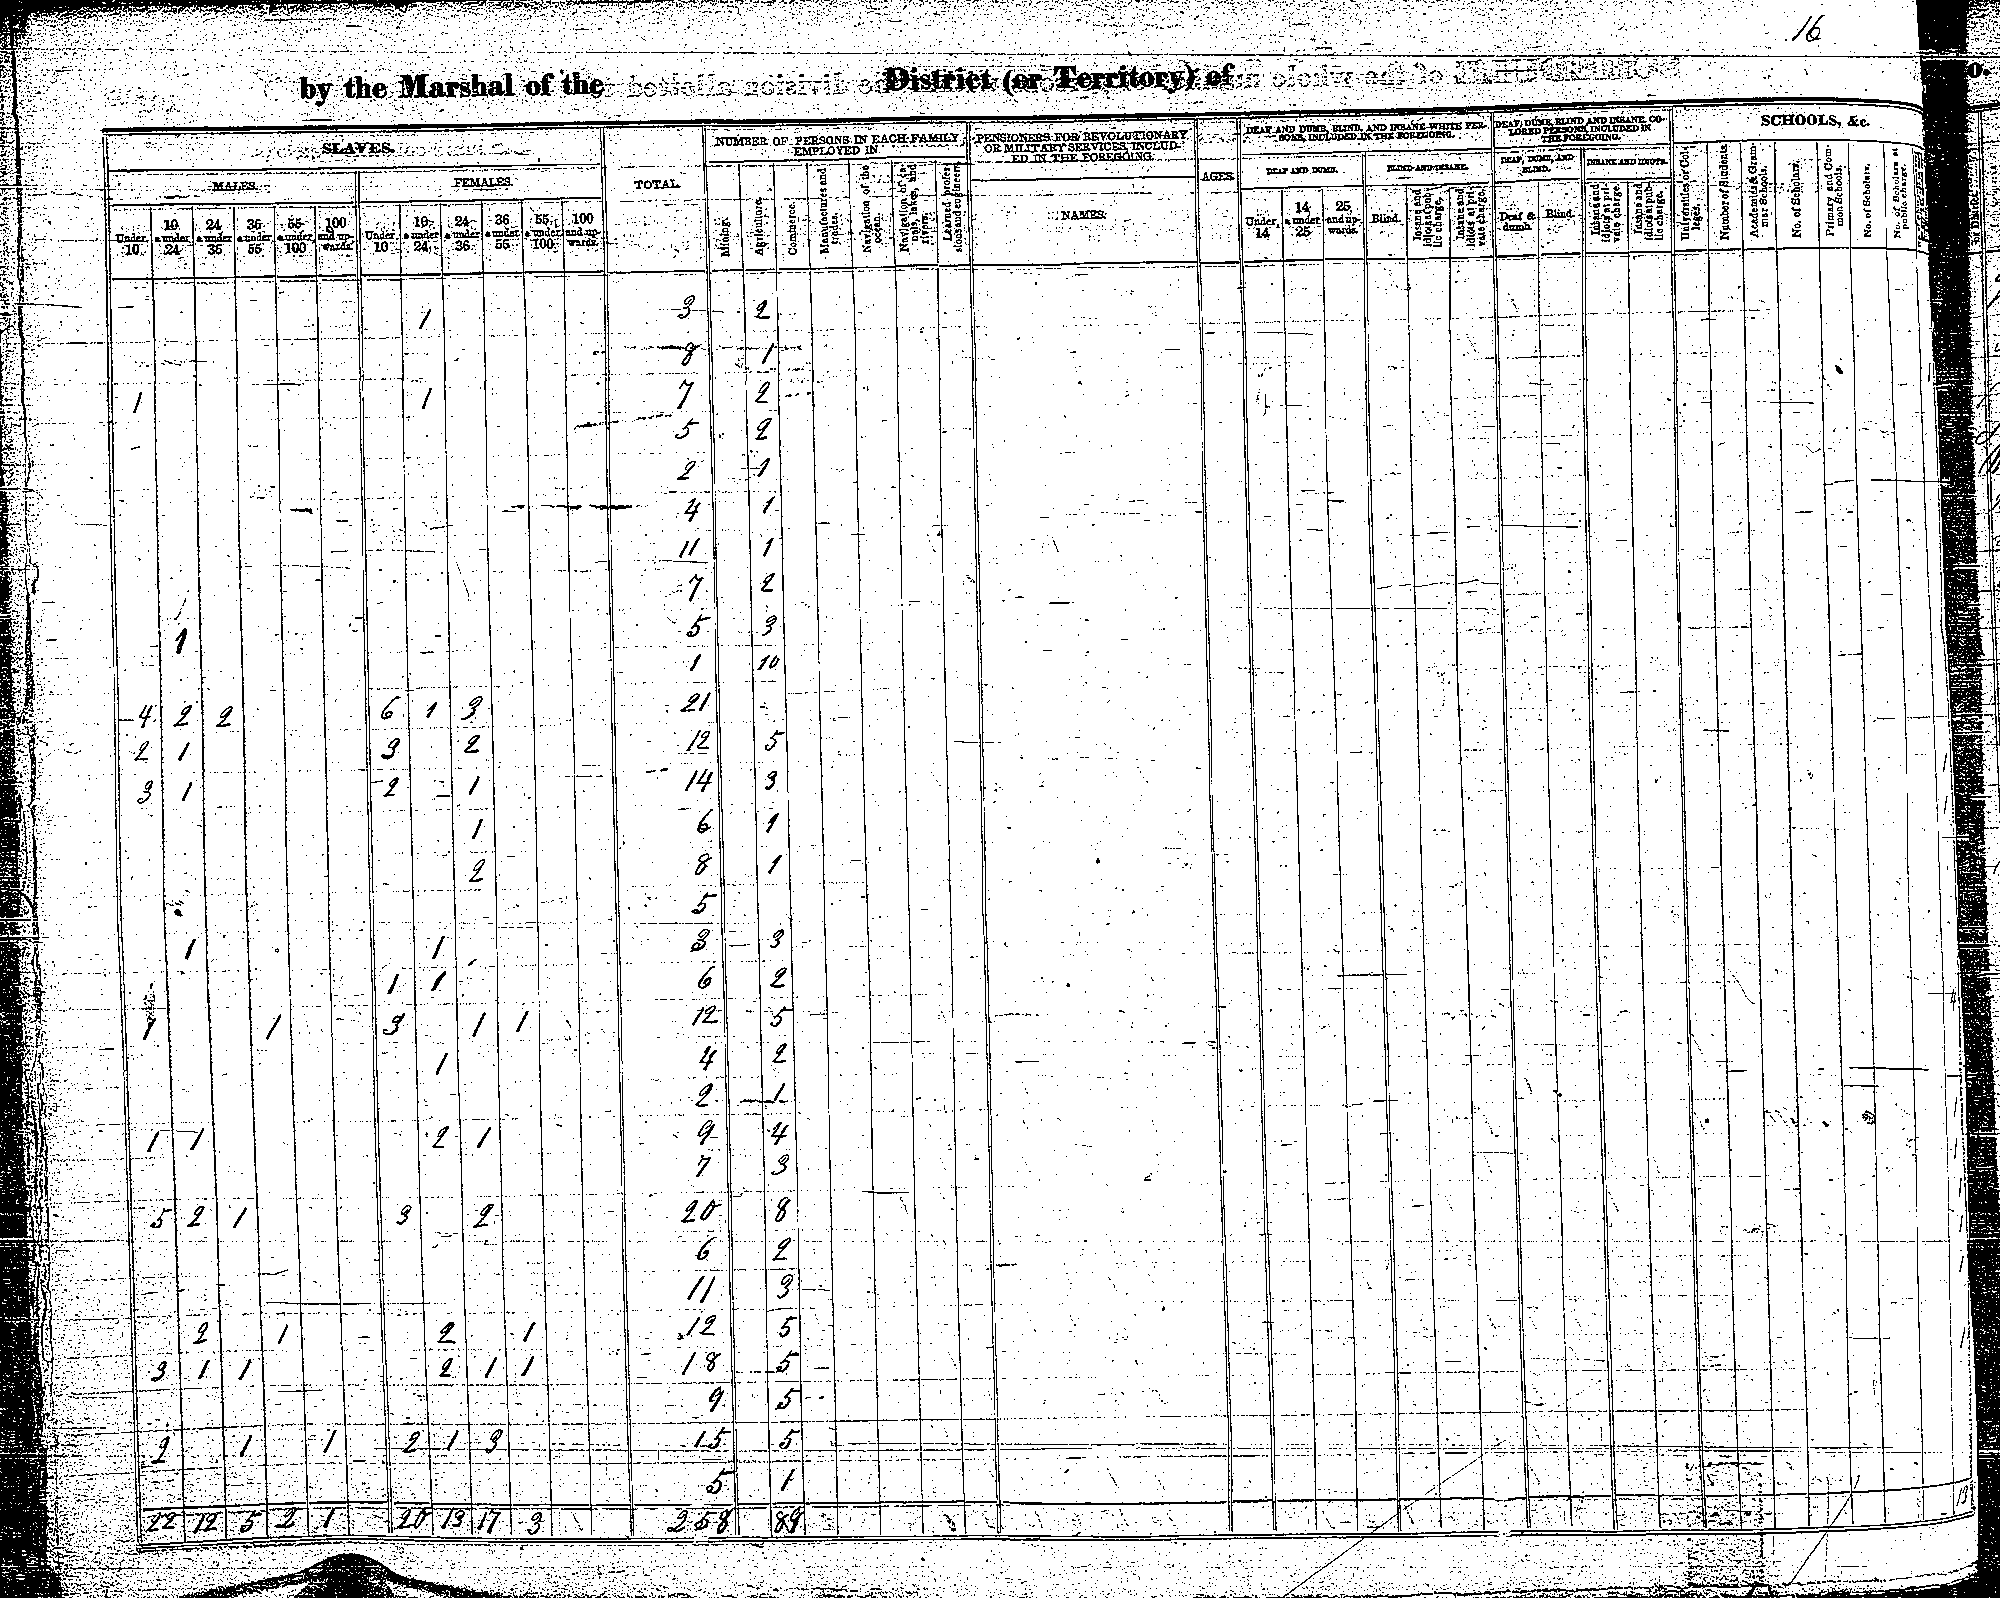 16
by the Marshal of the District (or Territory) of
SLAVES. TOTAL. NUMBER OF PERSONS IN EACH FAMILY EMPLOYED IN PENSIONERS FOR REVOLUTIONARY OR MILITARY SERVICES, INCLUDED IN THE FOREGOING. AGES DEAF AND DUMB, BLIND, AND INSANE WHITE PERSONS, INCLUDED IN THE FOREGOING. DEAF, DUMB, BLIND AND INSANE COLORED PERSONS, INCLUDED IN THE FOREGOING. SCHOOLS, &c.
MALES. FEMALES. NAMES. DEAF AND DUMB. BLIND AND INSANE. DEAF, DUMB, AND BLIND. INSANE AND IDIOTS.
Under 10. 10 & under 24 24 & under 36 36 & under 55 55 & under 100 100 and upwards. Under 10 10 & under 24 24 & under 36 36 & under 55 55 & under 100 100 and upwards. Mining. Agriculture. Commerce. Manufactures and trades. Navigation of the ocean. Navigation of canals, lakes, and rivers. Learned professions and engineers. Under 14 14 & under 25 25 and upwards. Blind. Insane and idiots at public charge. Insane and idiots at private charge. Deaf & dumb. Blind. Insane and idiots at private charge. Insane and idiots at public charge. Universities or Colleges. Number of Students Academies & Grammar Schools. No. of Scholars. Primary and Common Schools. No. of Scholars. No. of Scholars at public charge.
1 3 2
8 1
1 1 7 2
5 2
2 1
4 1
11 1
7 2
1 5 3
1 10
4 2 2 6 1 3 21
2 1 3 2 12 5
3 1 2 1 14 3
1 6 1
2 8 1
5
1 1 3 3
1 1 6 2
1 1 3 1 1 12 5
1 4 2
2 1
1 1 2 1 9 4
7 3
5 2 1 3 2 20 8
6 2
11 3
2 1 2 1 12 5
3 1 1 2 1 1 18 5
9 5
2 1 1 2 1 3 15 5
5 1
22 12 5 2 1 20 13 17 3 258 89